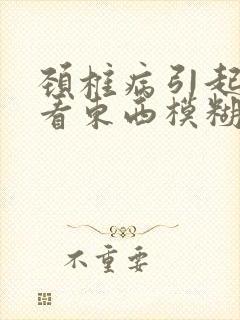 颈椎病引起
看东西模糊
不重要